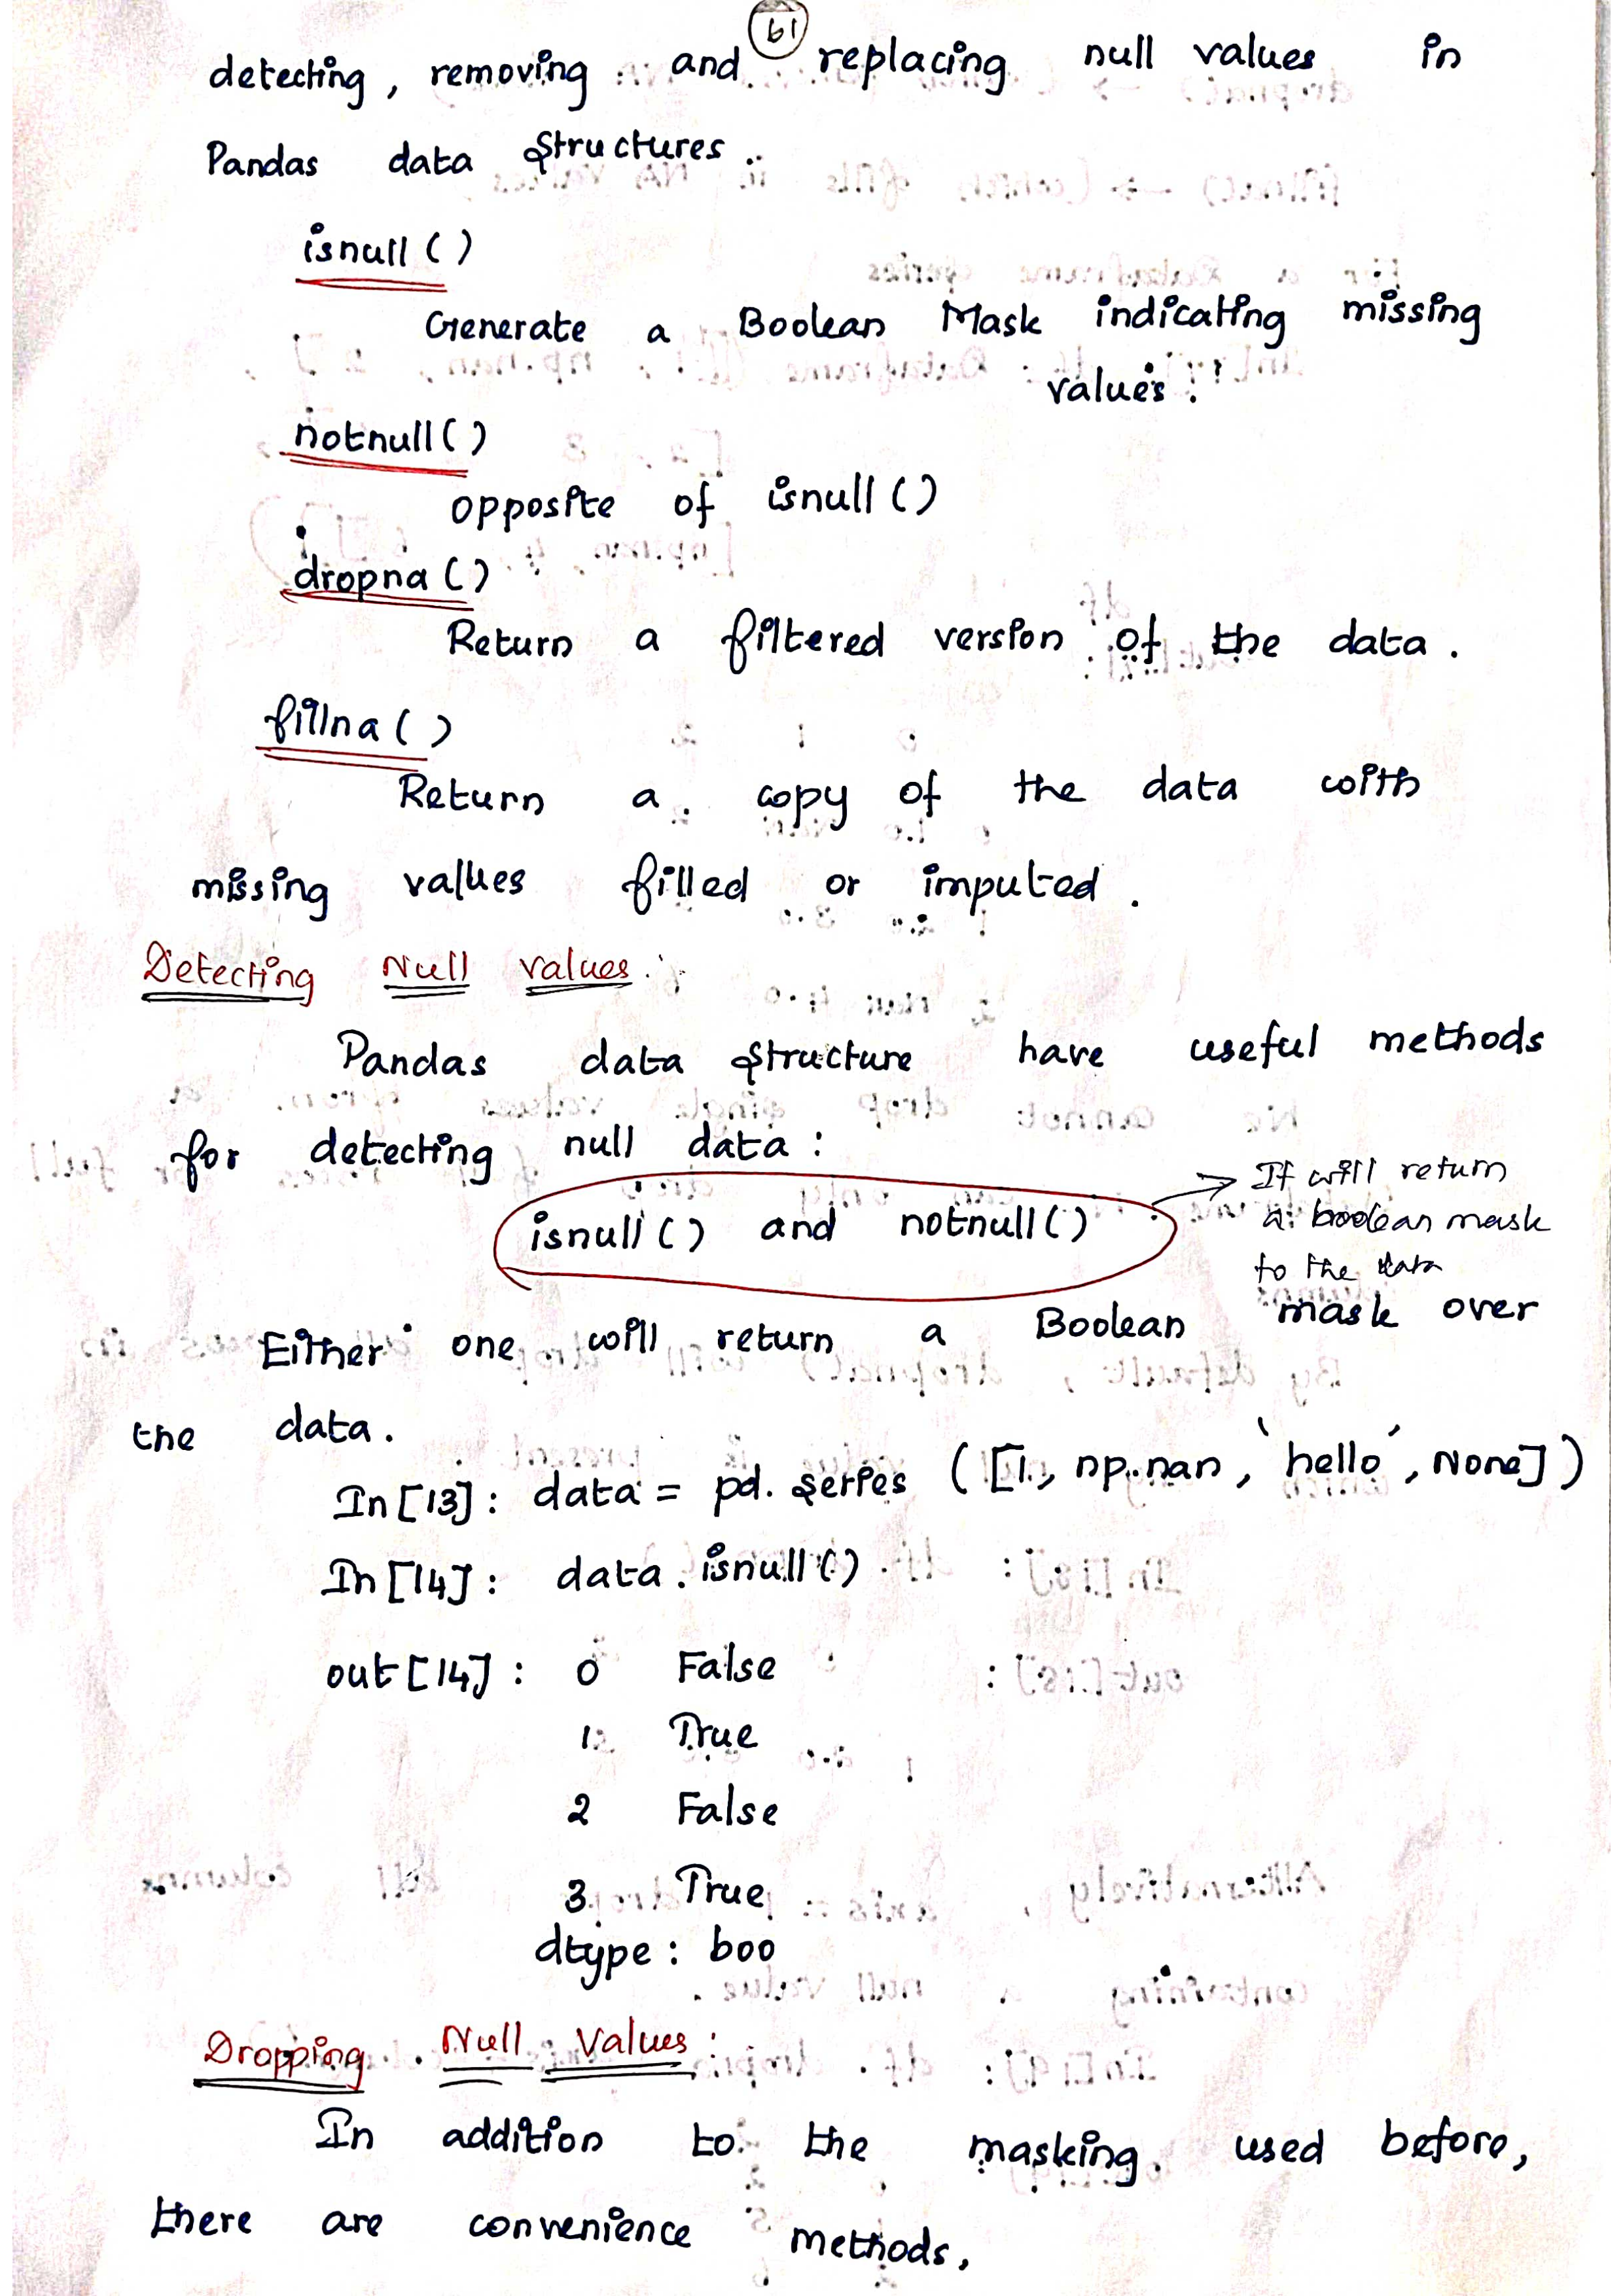 61
detecting, removing and replacing null values in
Pandas data structures.
isnull ( )
Generate a Boolean Mask indicating missing
values.
notnull ( )
opposite of isnull ( )
dropna ( )
Return a filtered version of the data.
fillna ( )
Return a copy of the data with
missing values filled or imputed.
Detecting Null values:
Pandas data structure have useful methods
for detecting null data:
isnull ( ) and notnull ( )
It will return
a boolean mask
to the data
Either one will return a Boolean mask over
the data.
In [13]: data = pd. series ([1, np.nan, 'hello', None])
In [14]: data. isnull ( )
out [14]: 0 False
1 True
2 False
3 True
dtype: boo
Dropping Null Values:
In addition to the masking used before,
there are convenience methods,